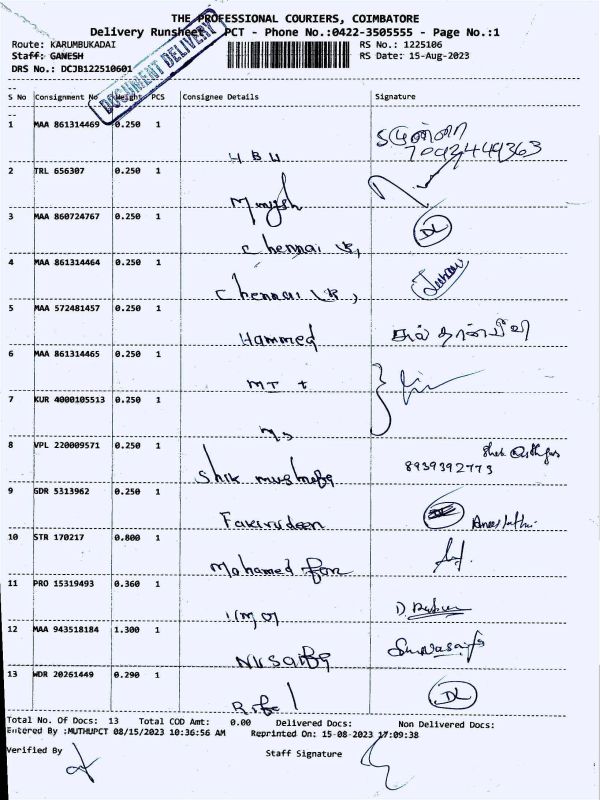 THE PROFESSIONAL COURIERS, COIMBATORE
Delivery Runsheet PCT - Phone No.:0422-3505555 - Page No.:1
Route: KARUMBUKADAI RS No.: 1225106
Staff: GANESH RS Date: 15-Aug-2023
DRS No.: DCJB122510601
DOCUMENT DELIVERY
S No Consignment No Weight PCS Consignee Details Signature
1 MAA 861314469 0.250 1
2 TRL 656307 0.250 1
3 MAA 860724767 0.250 1 DL
Chennai
4 MAA 861314464 0.250 1
Chennai
5 MAA 572481457 0.250 1
Hammed
6 MAA 861314465 0.250 1
MT
7 KUR 4000105513 0.250 1
MS
8 VPL 220009571 0.250 1
Shik 8939392773
9 GDR 5313962 0.250 1
Fakirudeen
10 STR 170217 0.800 1
Mohamed
11 PRO 15319493 0.360 1
12 MAA 943518184 1.300 1
13 WDR 20261449 0.290 1 DL
Total No. Of Docs: 13 Total COD Amt: 0.00 Delivered Docs: Non Delivered Docs:
Entered By :MUTHUPCT 08/15/2023 10:36:56 AM Reprinted On: 15-08-2023 17:09:38
Verified By Staff Signature